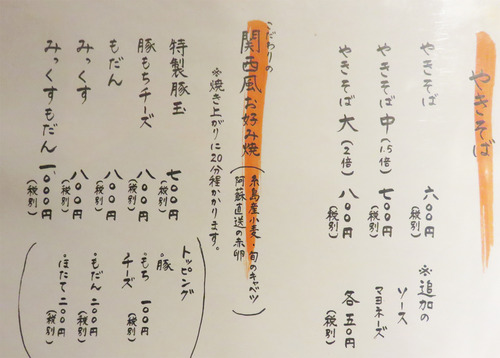 やきそば
やきそば 六〇〇円(税別)
やきそば 中(1.5倍) 七〇〇円(税別)
やきそば 大(2倍) 八〇〇円(税別)
※追加の
ソース
マヨネーズ
各五〇円(税別)
こだわりの
関西風お好み焼(糸島産小麦・旬のキャベツ
阿蘇直送の赤卵)
※焼き上がりに20分程かかります。
特製豚玉 七〇〇円(税別)
豚もちチーズ 八〇〇円(税別)
もだん 八〇〇円(税別)
みっくす 八〇〇円(税別)
みっくすもだん 一、〇〇〇円(税別)
(トッピング
・豚
・もち 一〇〇円(税別)
チーズ
・もだん 二〇〇円(税別)
・ほたて 二〇〇円(税別))